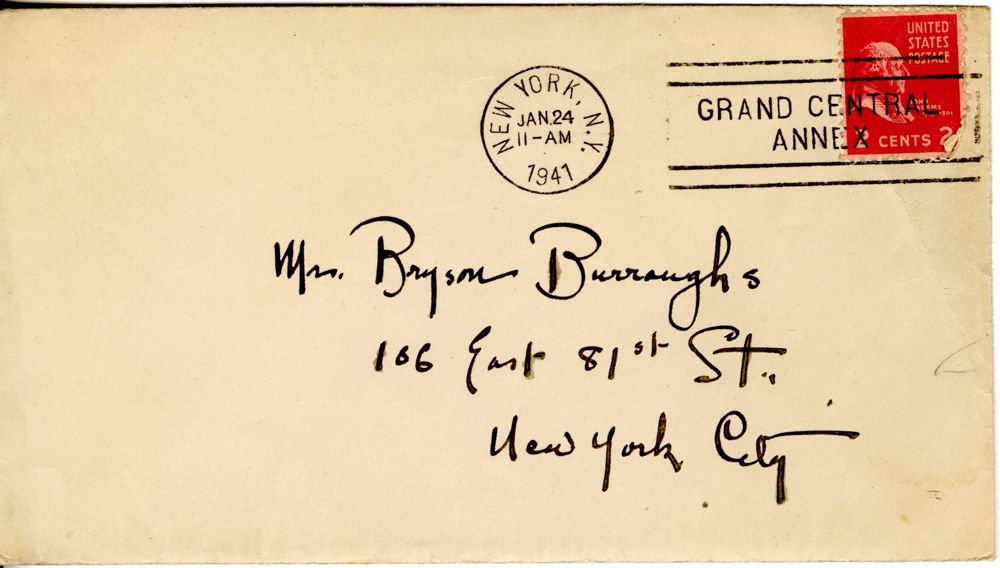 UNITED
STATES
POSTAGE
NEW YORK, N.Y.
JAN.24
11-AM
1941
GRAND CENTRAL
ANNEX
2 CENTS 2
Mrs. Bryson Burroughs
106 East 81st St.
New York City